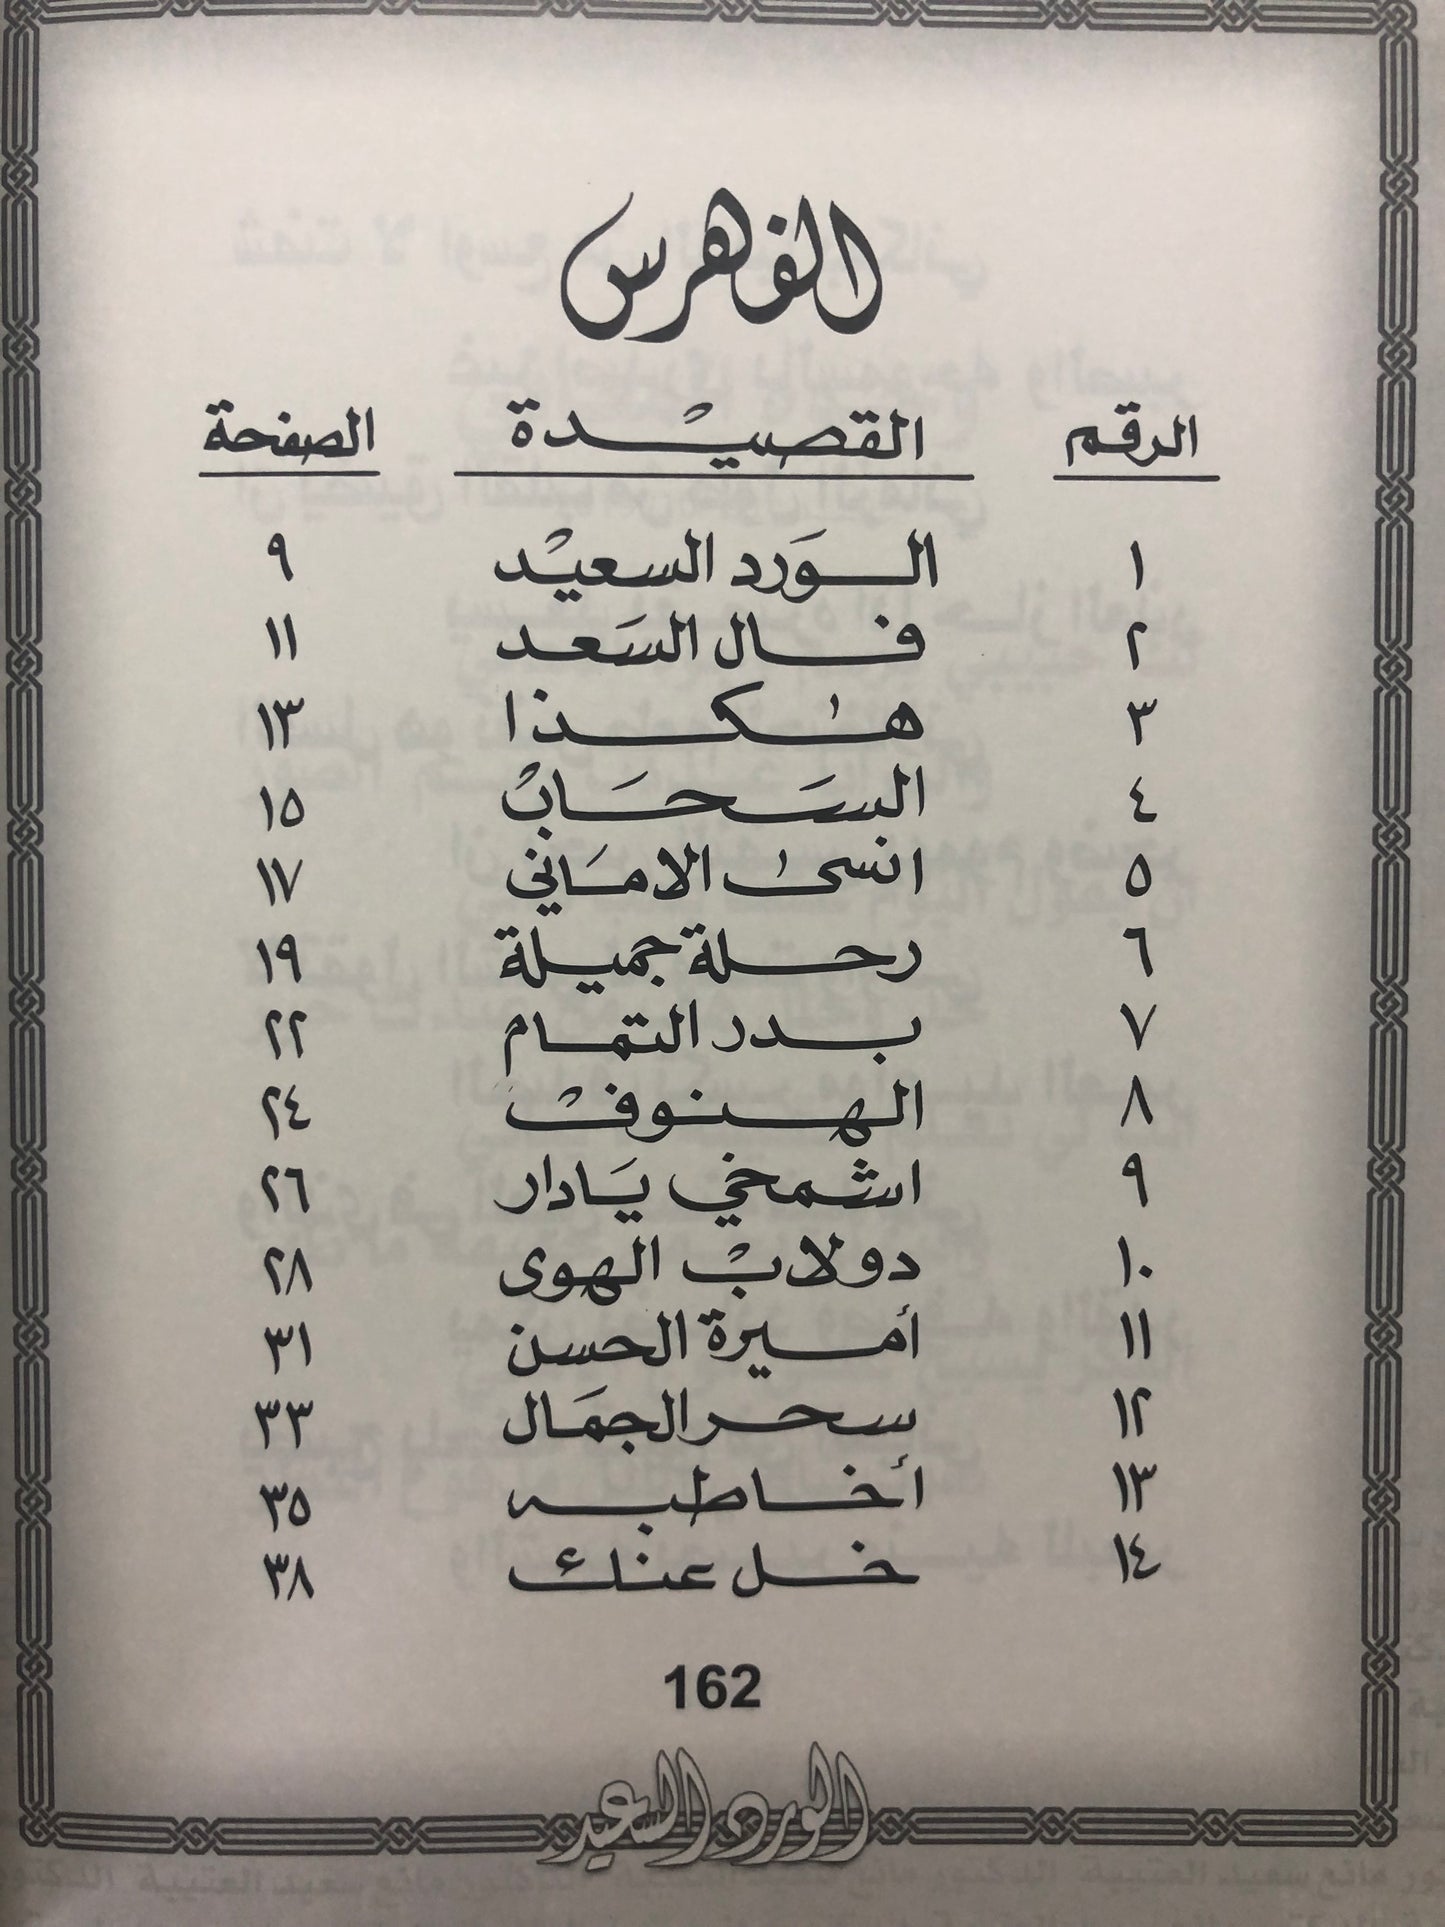 الفهرس
الرقم القصيْدة الصفحة
١ الوَرد السعيْد ٩
٢ فال السَعد ١١
٣ هٰكذا ١٣
٤ السَحَابْ ١٥
٥ انسىٰ الامَاني ١٧
٦ رحلة جميلة ١٩
٧ بدر التمام ٢٢
٨ الهنوفْ ٢٤
٩ اشمخي يَادار ٢٦
١٠ دولابْ الهوى ٢٨
١١ أميرة الحسن ٣١
١٢ سحر الجمَال ٣٣
١٣ أخاطبه ٣٥
١٤ خل عنك ٣٨
162
الورد السعيد